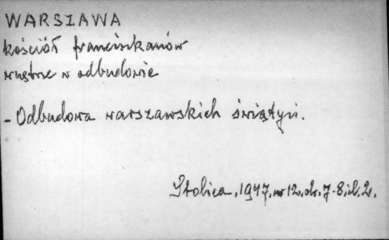 WARSZAWA
kościół franciszkanów
wnętrze w odbudowie
- Odbudowa warszawskich świątyń.
Stolica, 1947, nr 12, st. 7-8, il. 2.